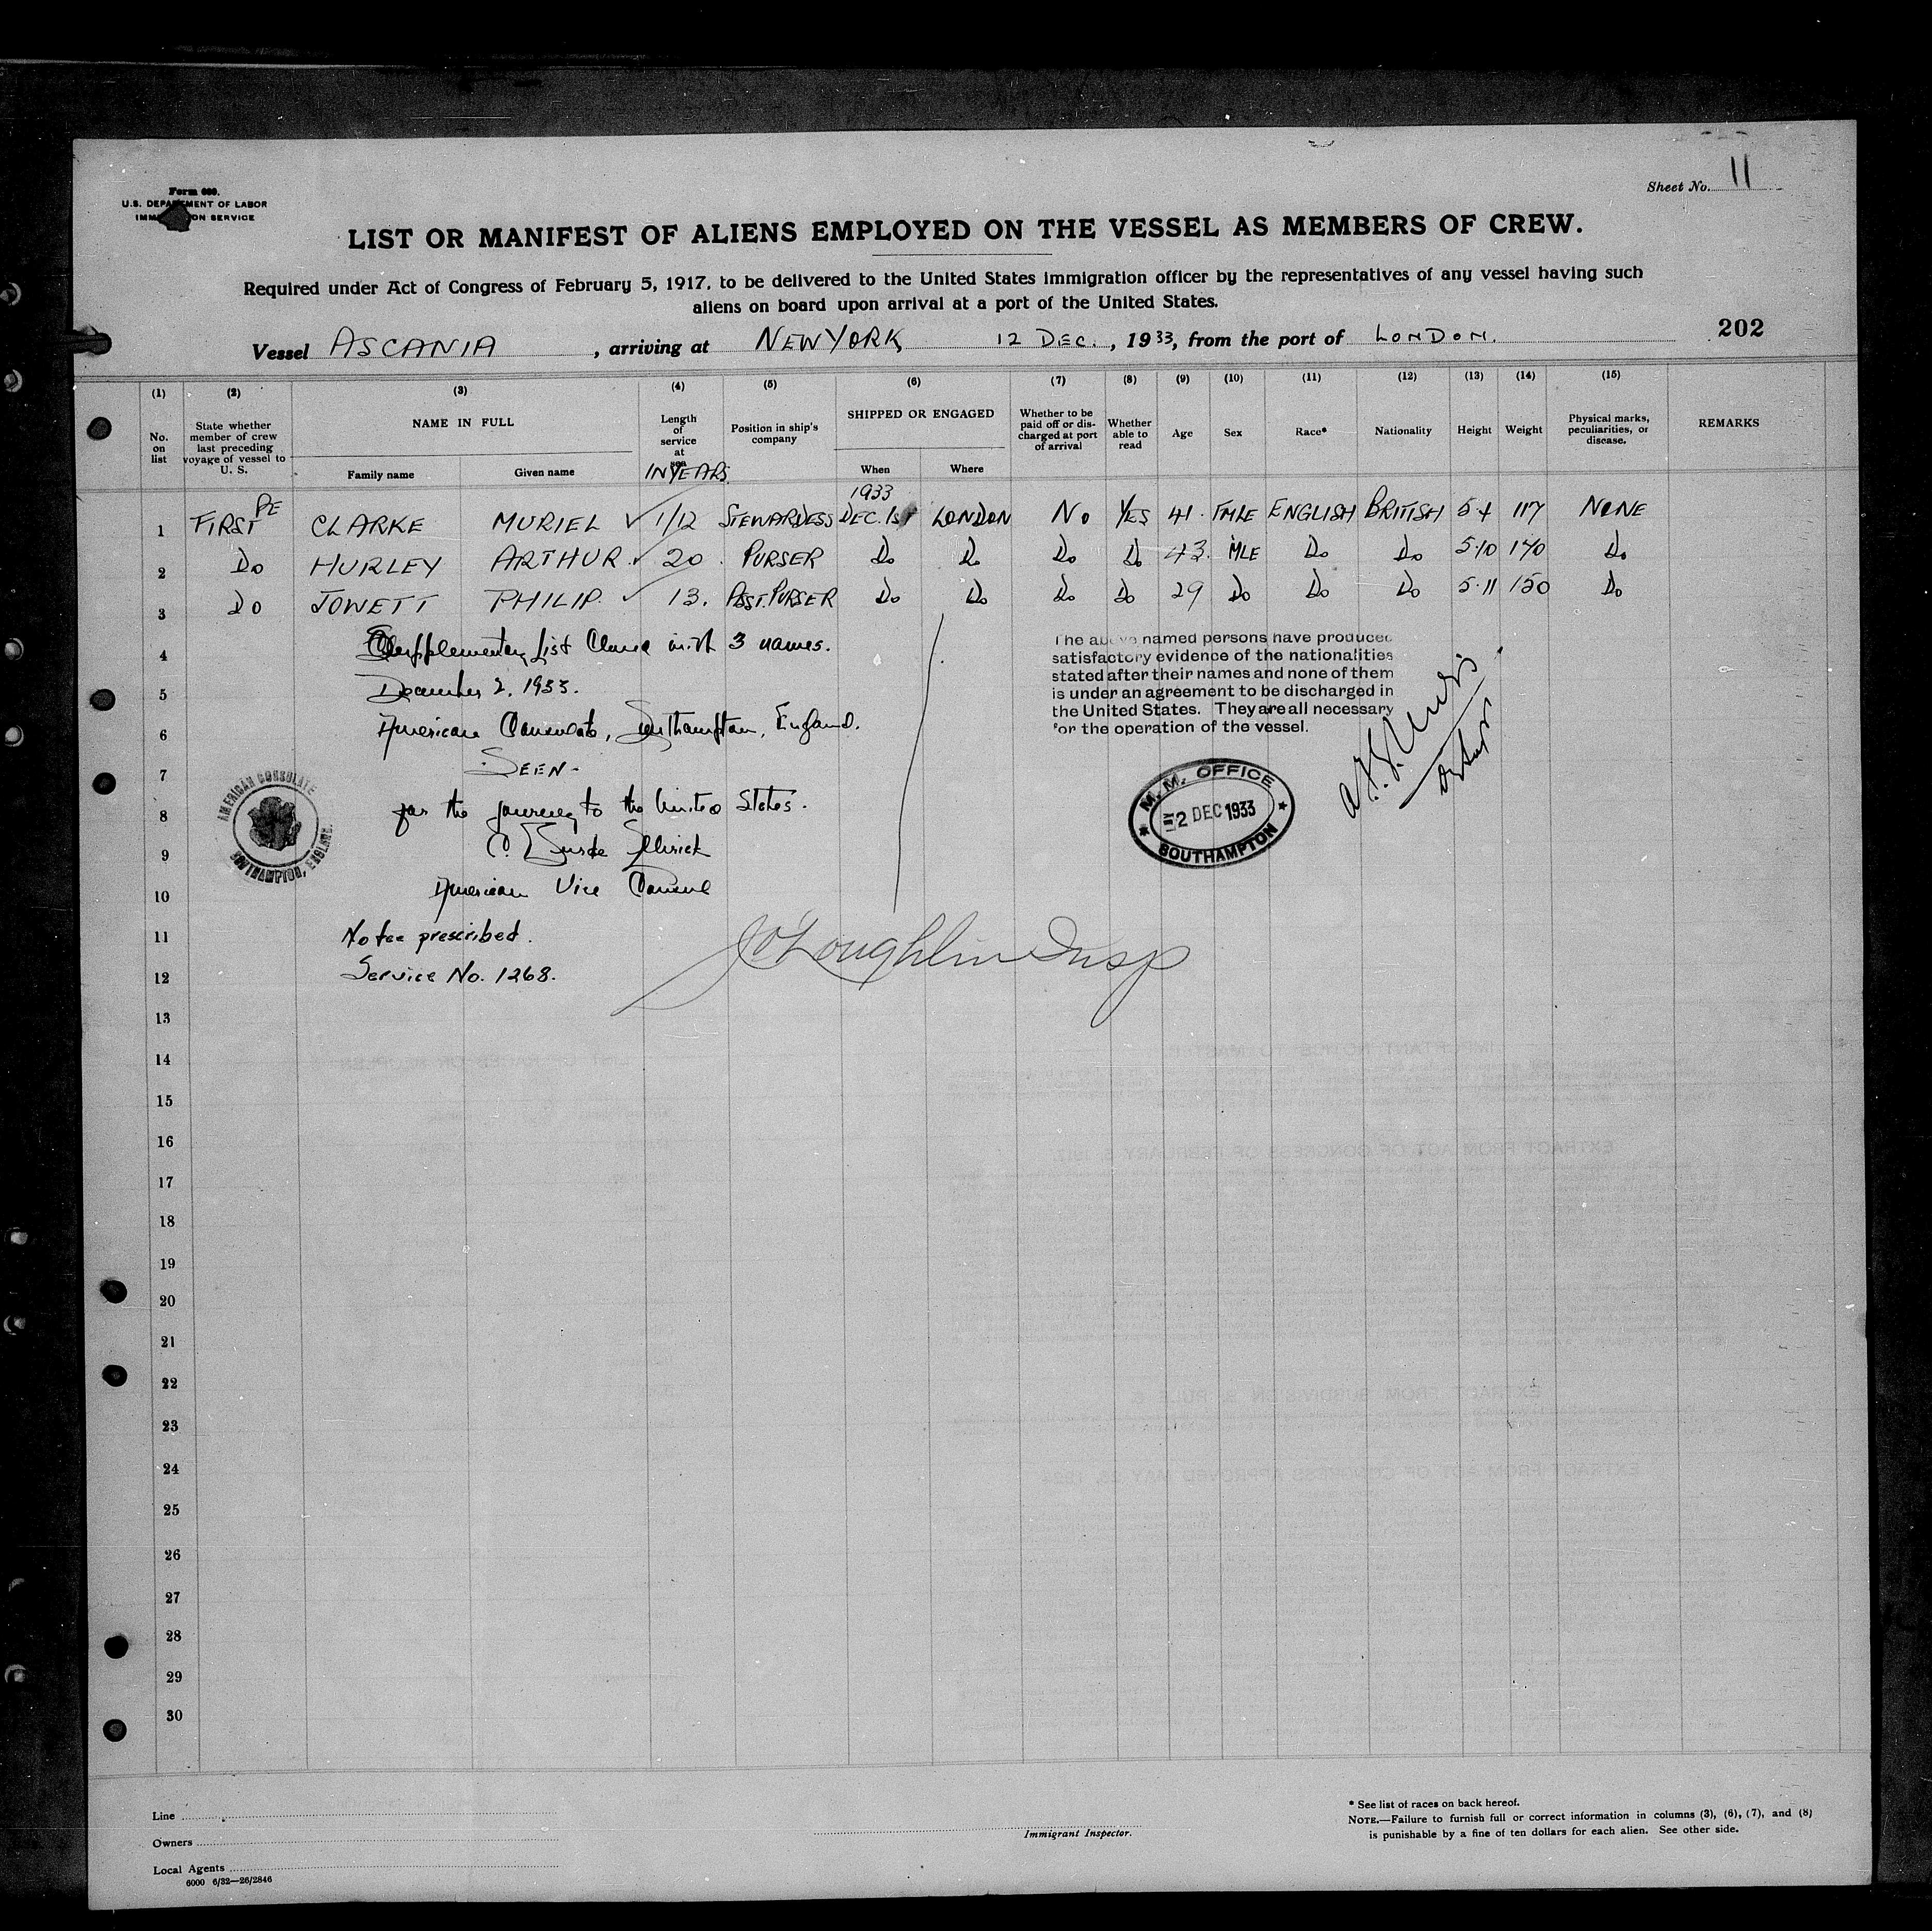 Sheet No. 11
Form 689.
U.S. DEPARTMENT OF LABOR
IMMIGRATION SERVICE
LIST OR MANIFEST OF ALIENS EMPLOYED ON THE VESSEL AS MEMBERS OF CREW.
Required under Act of Congress of February 5, 1917, to be delivered to the United States immigration officer by the representatives of any vessel having such
aliens on board upon arrival at a port of the United States.
Vessel ASCANIA, arriving at NEW YORK 12 DEC., 1933, from the port of LONDON. 202
(1) (2) (3) (4) (5) (6) (7) (8) (9) (10) (11) (12) (13) (14) (15)
No. on list State whether member of crew last preceding voyage of vessel to U. S. NAME IN FULL Family name Given name Length of service at sea IN YEARS. Position in ship's company SHIPPED OR ENGAGED When Where Whether to be paid off or discharged at port of arrival Whether able to read Age Sex Race* Nationality Height Weight Physical marks, peculiarities, or disease. REMARKS
1933
1 FIRST CLARKE MURIEL ✓ 1/12 STEWARDESS DEC. 1st LONDON No YES 41 FMLE ENGLISH BRITISH 5·4 117 NONE
2 Do HURLEY ARTHUR ✓ 20 PURSER Do Do Do Do 43 MLE Do Do 5·10 140 Do
3 Do JOWETT PHILIP ✓ 13. ASST. PURSER Do Do Do Do 29 Do Do Do 5·11 150 Do
4 Supplementary List Closed with 3 names.
5 December 2, 1933.
6 American Consulate, Southampton, England.
7 SEEN-
8 for the journey to the United States.
9
10 American Vice Consul
11 No fee prescribed.
12 Service No. 1268.
The above named persons have produced
satisfactory evidence of the nationalities
stated after their names and none of them
is under an agreement to be discharged in
the United States. They are all necessary
for the operation of the vessel.
AMERICAN CONSULATE
SOUTHAMPTON, ENGLAND.
M.M. OFFICE
2 DEC 1933
SOUTHAMPTON
J O'Loughlin Insp
13
14
15
16
17
18
19
20
21
22
23
24
25
26
27
28
29
30
Line
Owners
Local Agents
6000 6/32—26/2846
Immigrant Inspector.
* See list of races on back hereof.
NOTE.—Failure to furnish full or correct information in columns (3), (6), (7), and (8)
is punishable by a fine of ten dollars for each alien. See other side.